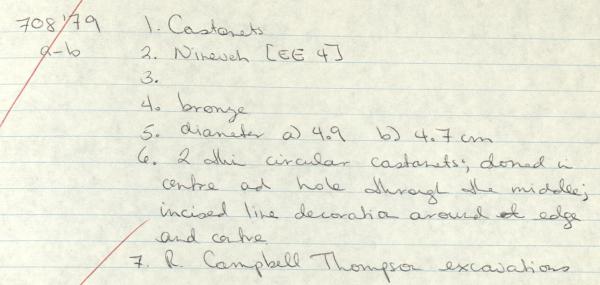 708'79 1. Castanets
a-b 2. Nineveh [EE 4]
3.
4. bronze
5. diameter a) 4.9 b) 4.7 cm
6. 2 thin circular castanets; domed in
centre and hole through the middle;
incised line decoration around edge
and centre
7. R. Campbell Thompson excavations